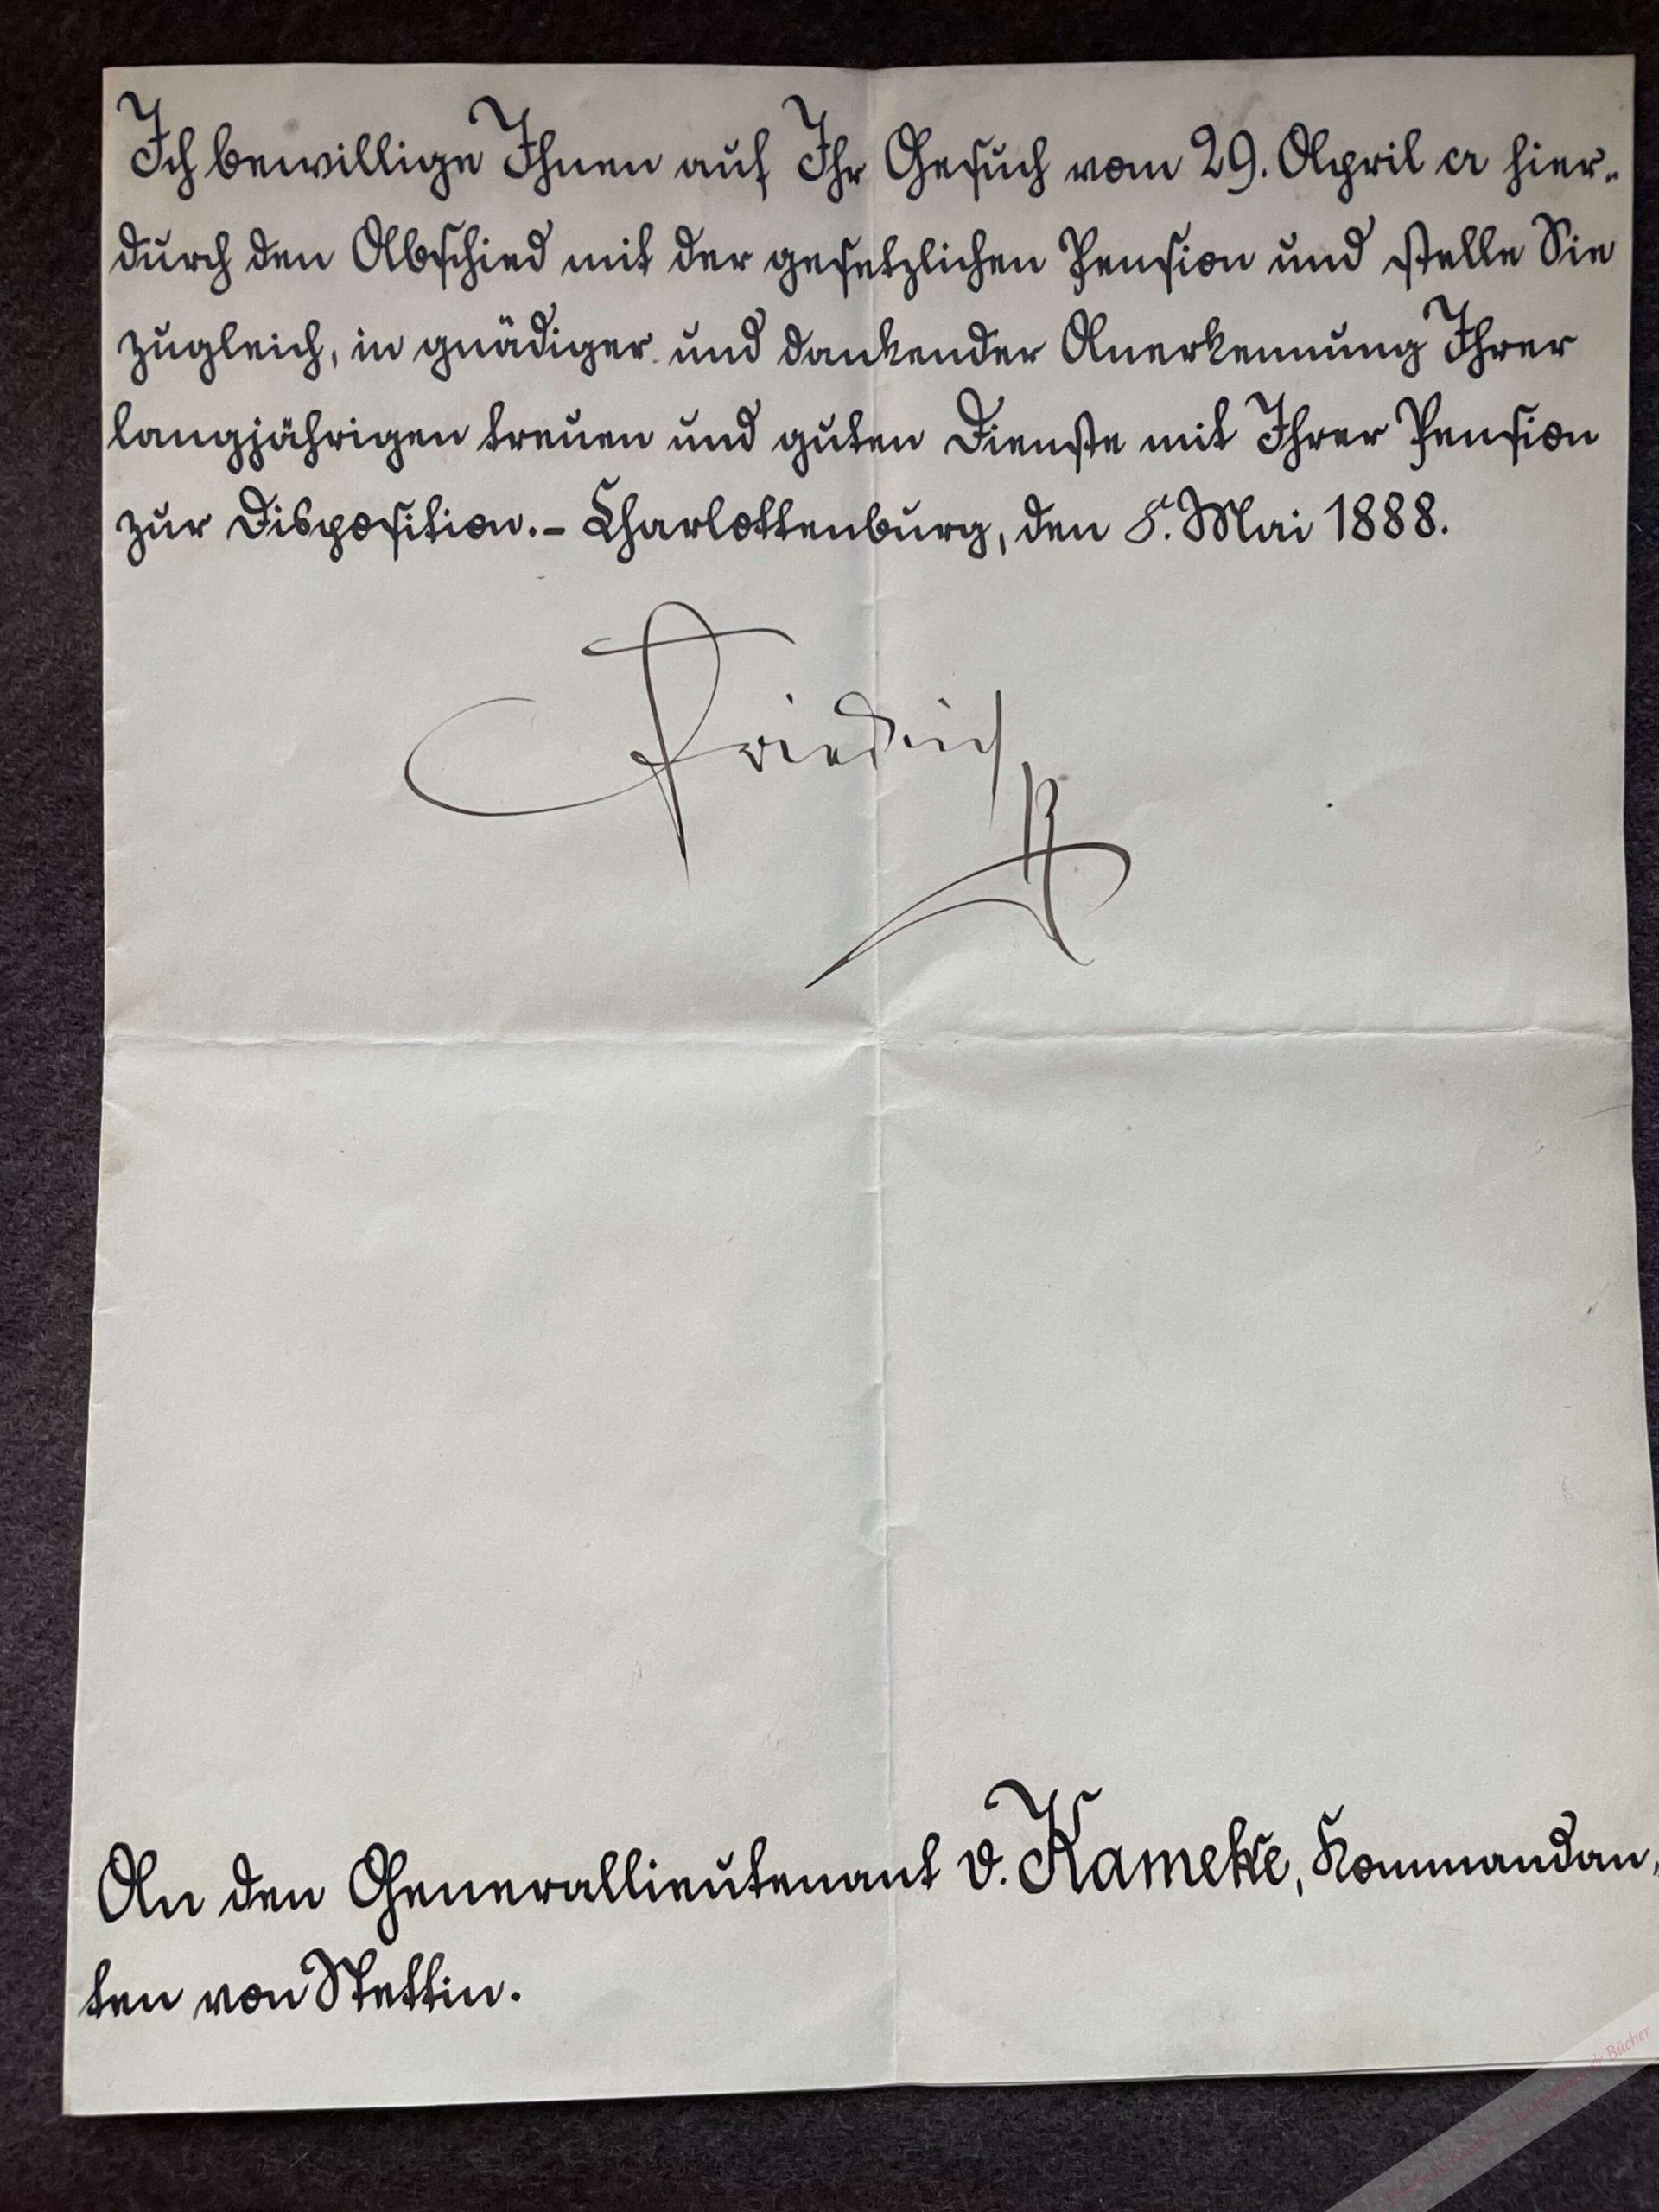 Ich bewillige Ihnen auf Ihr Gesuch vom 29. April cr hier-
durch den Abschied mit der gesetzlichen Pension und stelle Sie
zugleich, in gnädiger und dankender Anerkennung Ihrer
langjährigen treuen und guten Dienste mit Ihrer Pension
zur Disposition.- Charlottenburg, den 8. Mai 1888.
Friedrich
R
An den Generallieutenant v. Kameke, Kommandan-
ten von Stettin.
Bücher